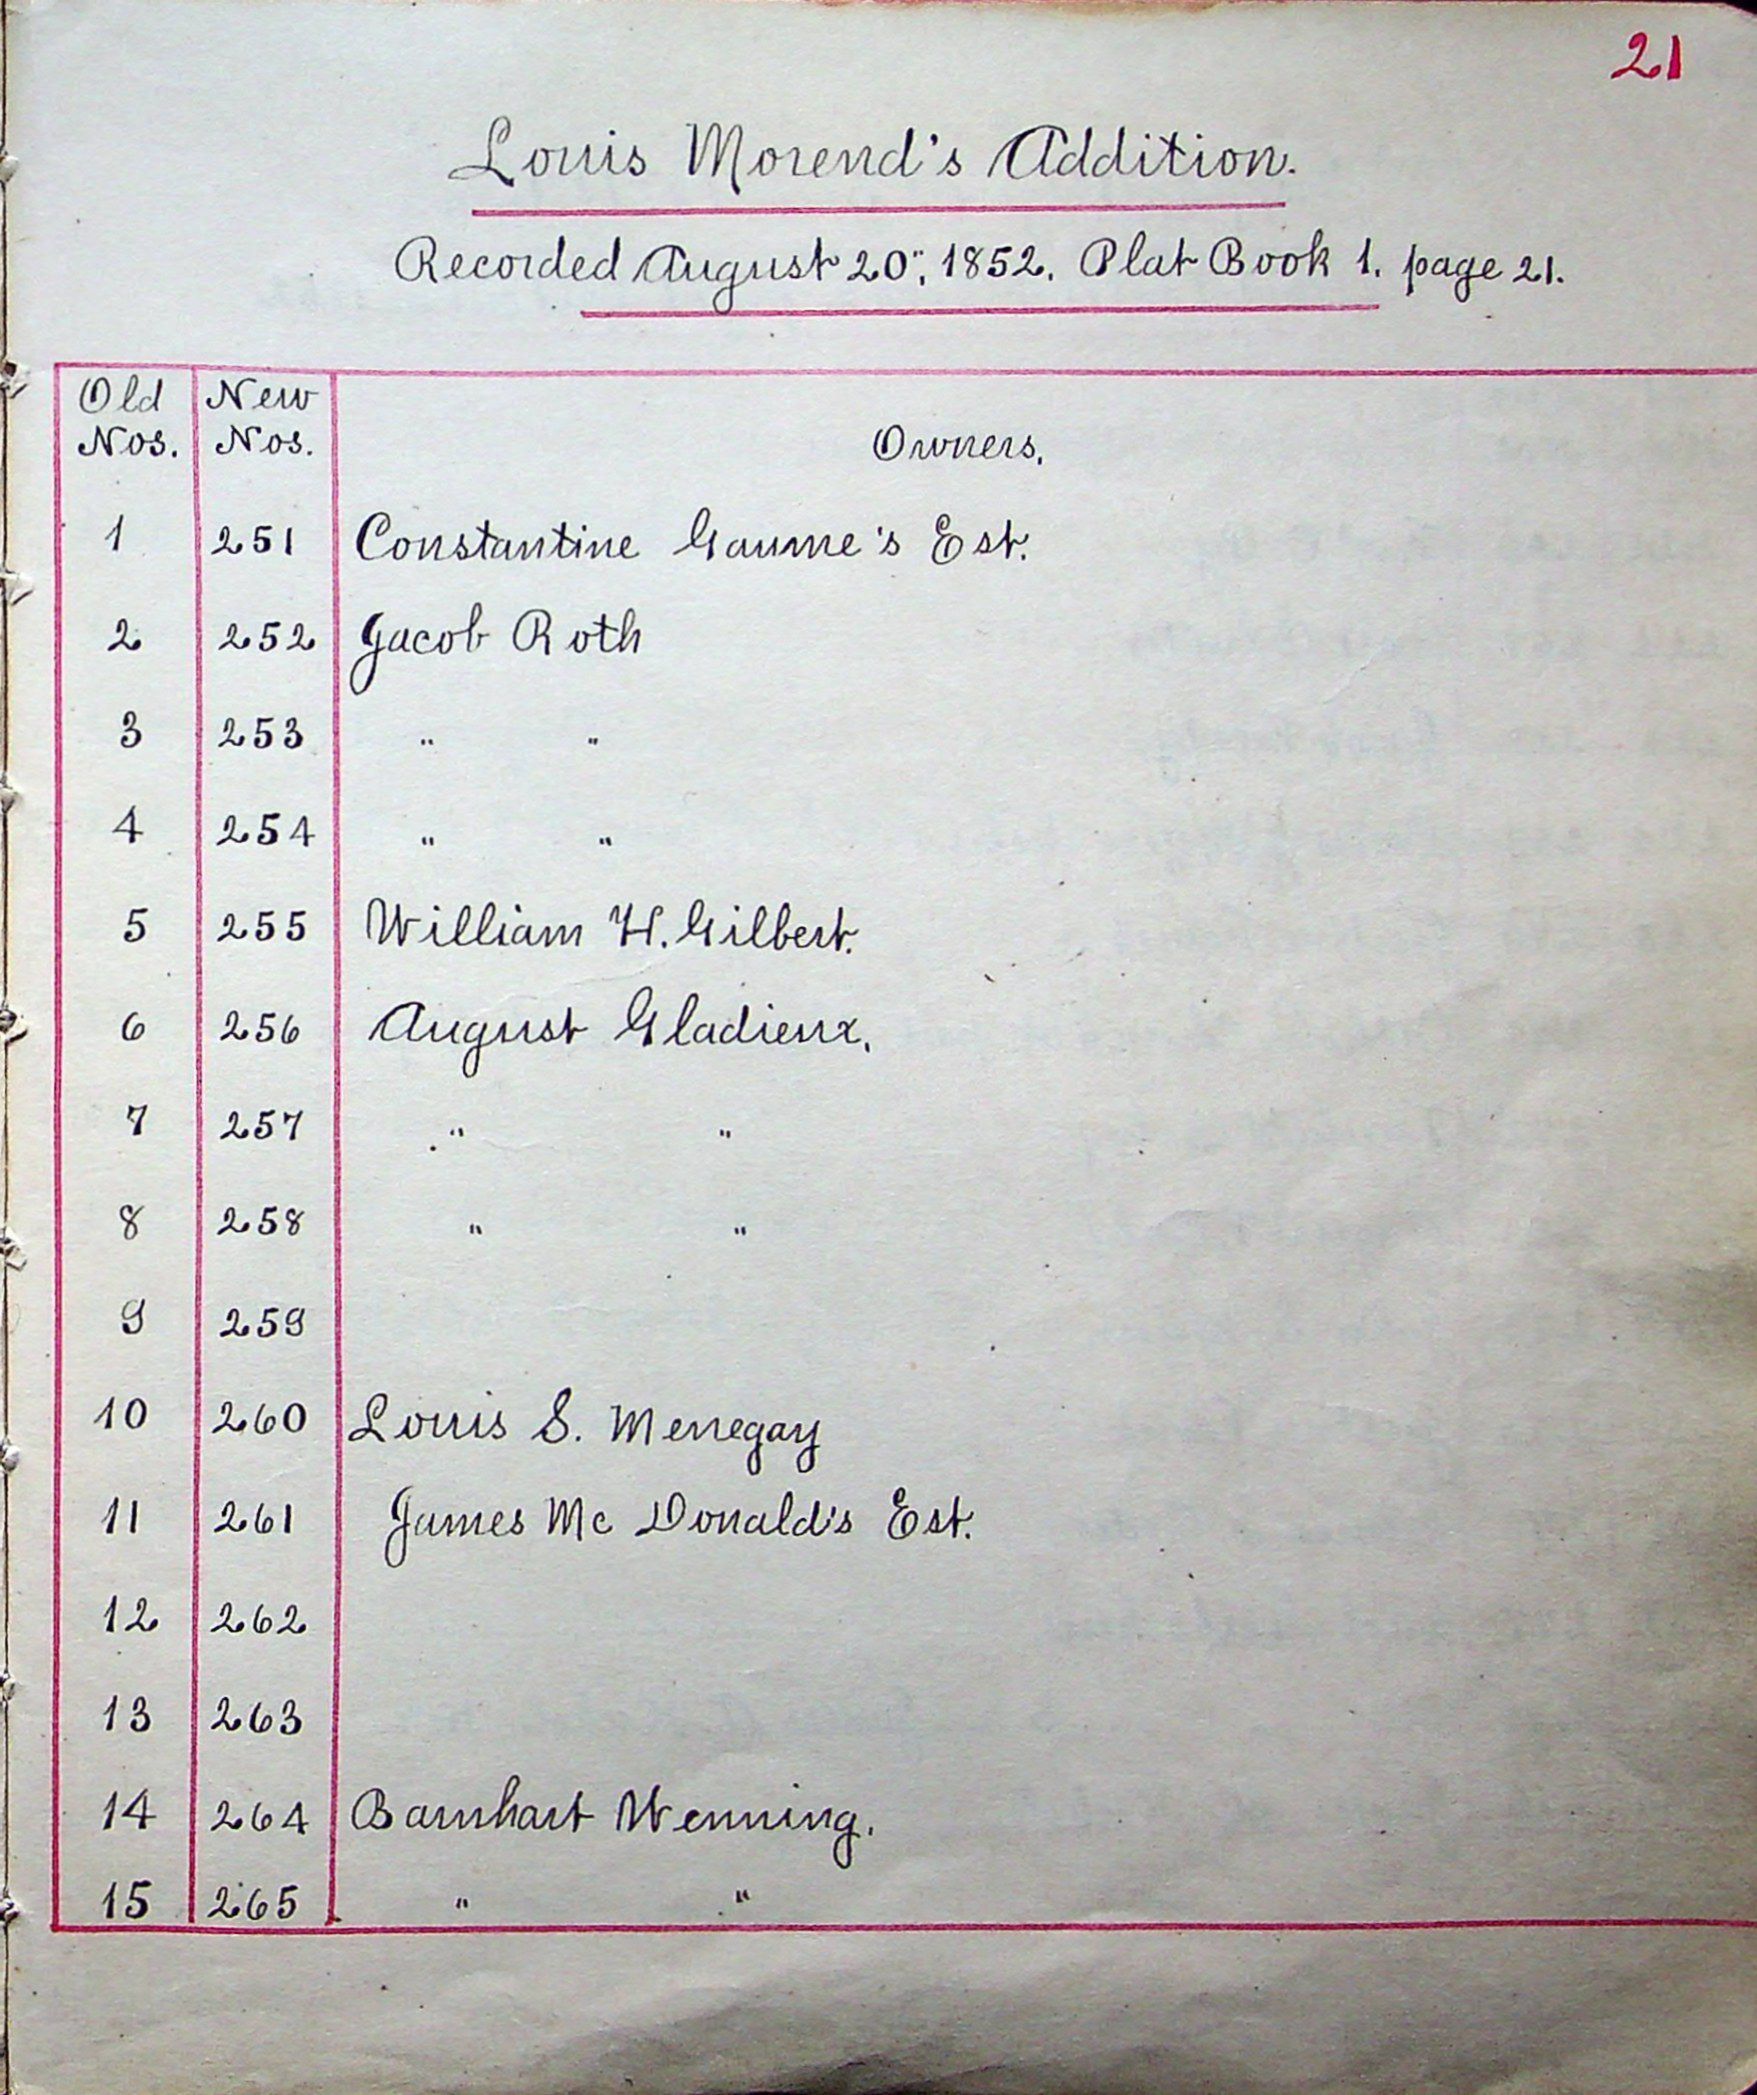 21
Louis Morend's Addition.
Recorded August 20", 1852. Plat Book 1. page 21.
Old Nos. New Nos. Owners.
1 251 Constantine Gaume's Est.
2 252 Jacob Roth
3 253 " "
4 254 " "
5 255 William H. Gilbert.
6 256 August Gladieux.
7 257 " "
8 258 " "
9 259
10 260 Louis S. Menegay
11 261 James Mc Donald's Est.
12 262
13 263
14 264 Barnhart Wenning.
15 265 " "